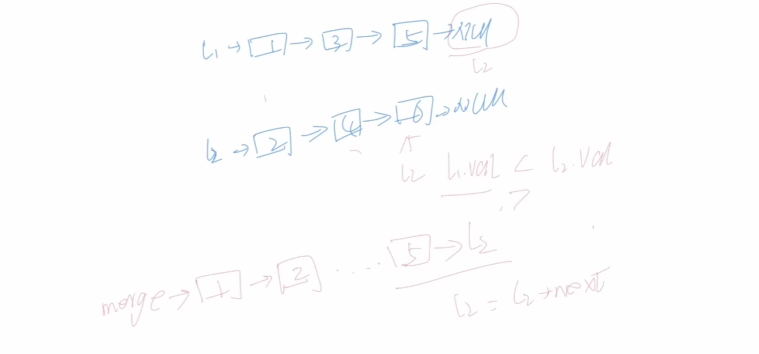 L1 → 1 → 3 → 5 → NULL
L2
L2 → 2 → 4 → 6 → NULL
L2 L1.val < L2.val
>
merge → 1 → 2 ..... 5 → L2
L2 = L2→next